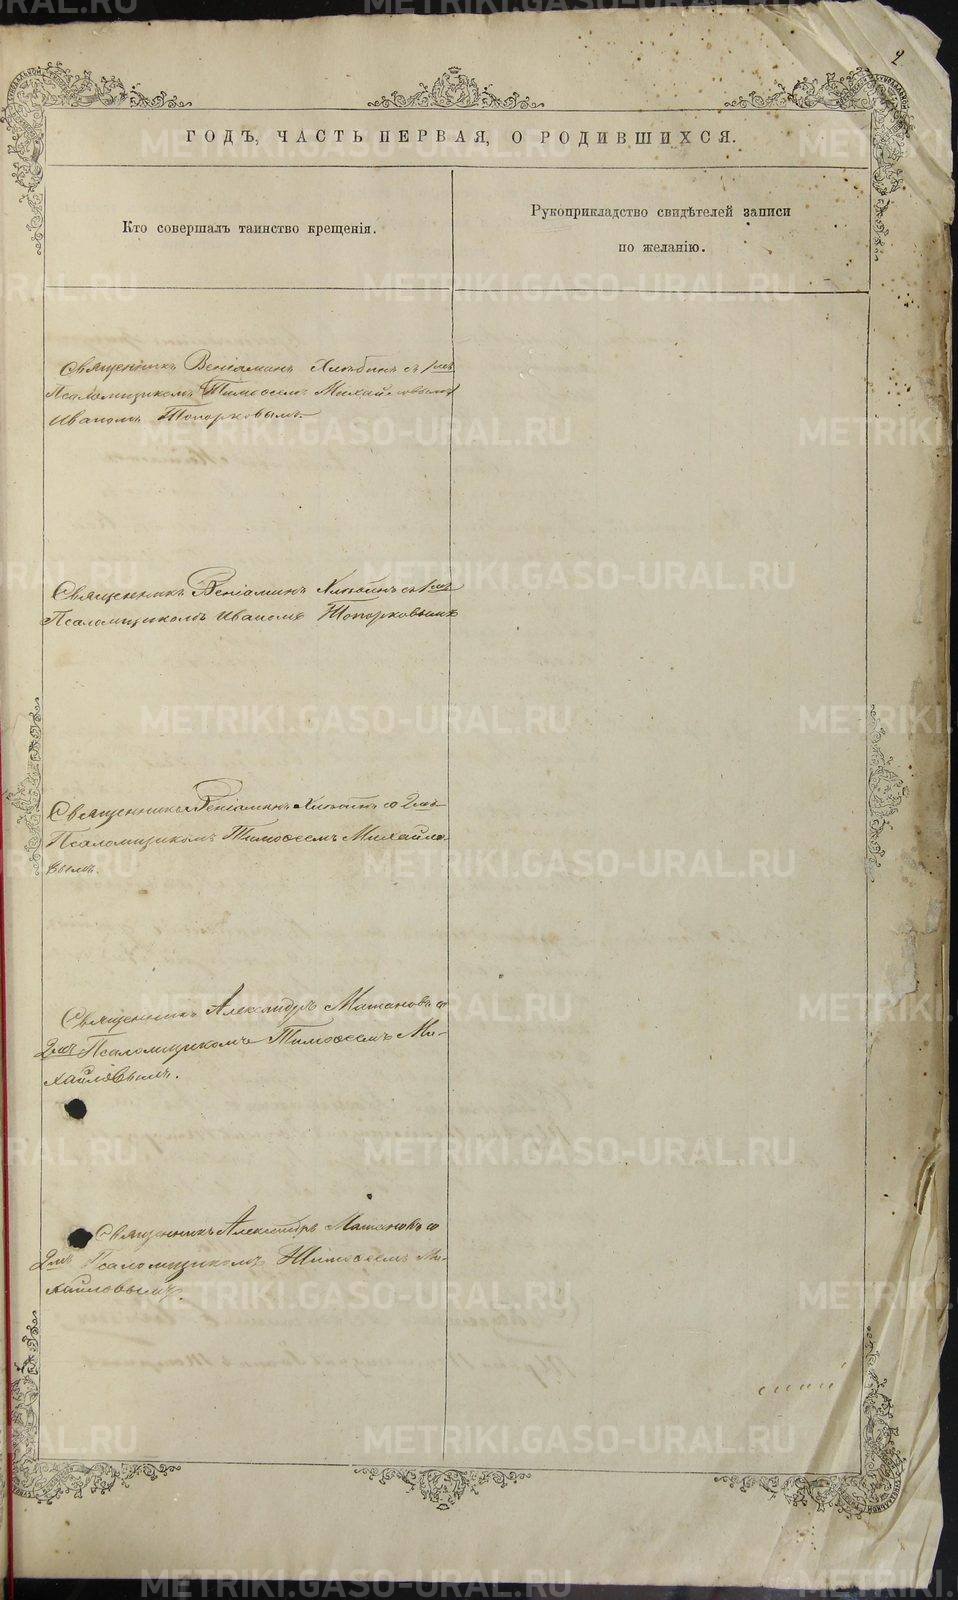 2
ГОДЪ, ЧАСТЬ ПЕРВАЯ, О РОДИВШИХСЯ.
Кто совершалъ таинство крещенія.
Рукоприкладство свидѣтелей записи
по желанію.
Священникъ Веніаминъ Хлѣбинъ съ 1мъ
Псаломщикомъ Тимофеемъ Михайловымъ
Иваномъ Топорковымъ
Священникъ Веніаминъ Хлѣбинъ съ 1мъ
Псаломщикомъ Иваномъ Топорковымъ
Священникъ Веніаминъ Хлѣбинъ со 2мъ
Псаломщикомъ Тимофеемъ Михайло-
вымъ.
Священникъ Александръ Матановъ со
2мъ Псаломщикомъ Тимофеемъ Ми-
хайловымъ.
Священникъ Александръ Матановъ со
2мъ Псаломщикомъ Тимофеемъ Ми-
хайловымъ.
METRIKI.GASO-URAL.RU